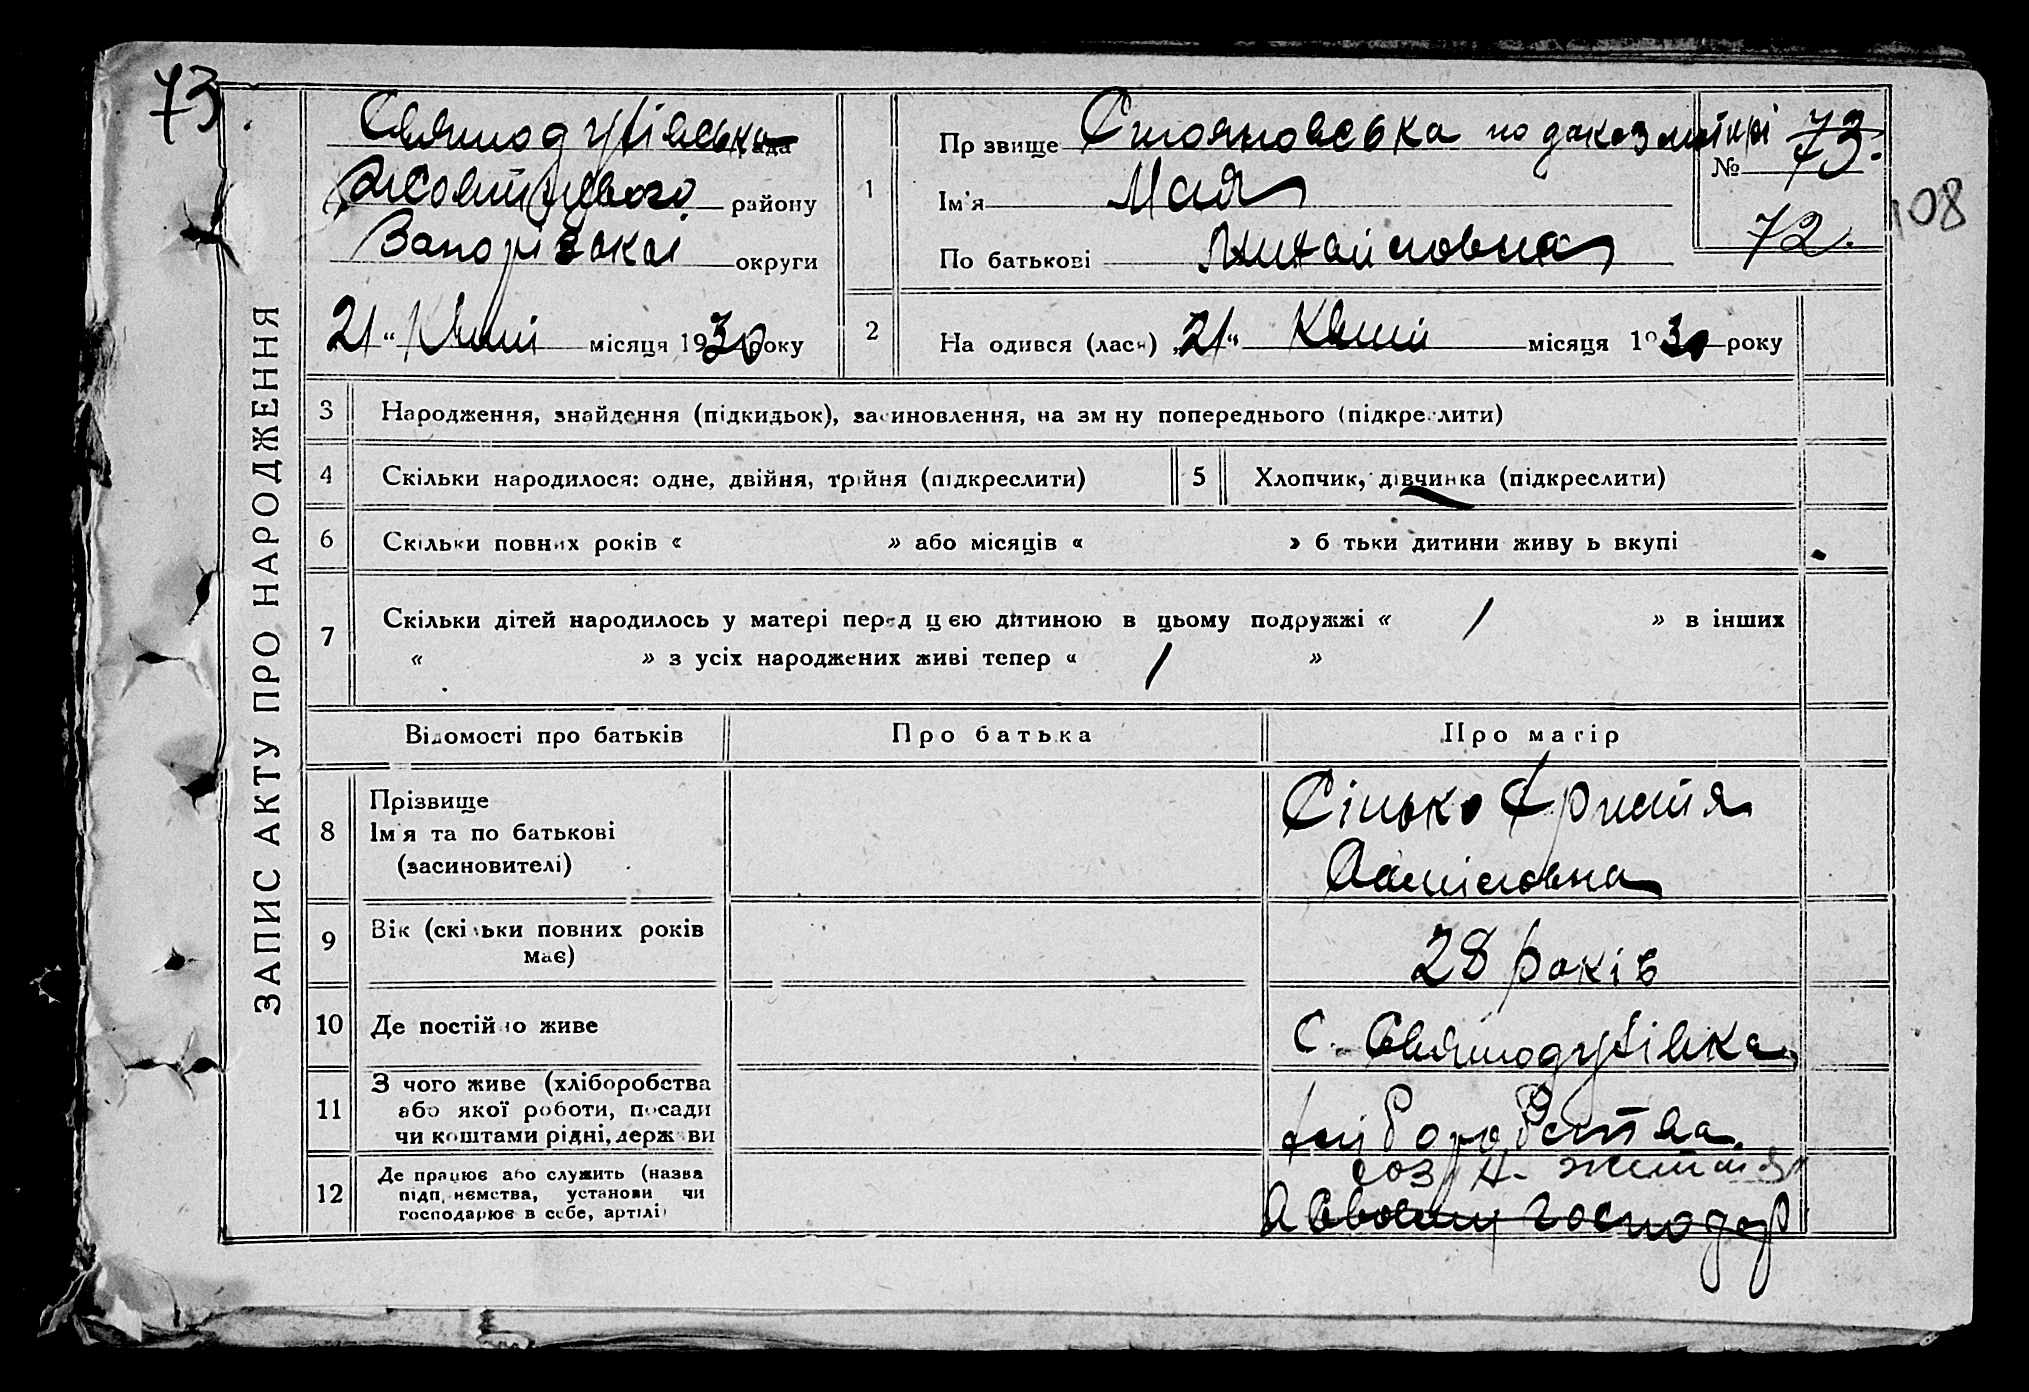 73
ЗАПИС АКТУ ПРО НАРОДЖЕННЯ
Святодухівська рада
району
Запорізької округи
21 " Квітні місяця 1930 року
1
Прізвище Стояновська по
Ім'я Мая
По батькові Михайловна
№ 73.
72.
108
2
Народився (лась) „21" Квітні місяця 1930 року
3 Народження, знайдення (підкидьок), засиновлення, на зміну попереднього (підкреслити)
4 Скільки народилося: одне, двійня, трійня (підкреслити)
5 Хлопчик, дівчинка (підкреслити)
6 Скільки повних років « » або місяців « » батьки дитини живуть вкупі
7 Скільки дітей народилось у матері перед цією дитиною в цьому подружжі « 1 » в інших
« » з усіх народжених живі тепер « 1 »
Відомості про батьків
Про батька
Про матір
8 Прізвище
Ім'я та по батькові
(засиновителі)
Сінько Христя
9 Вік (скільки повних років
має)
28 років
10 Де постійно живе
С. Святодухівка
11 З чого живе (хліборобства
або якої роботи, посади
чи коштами рідні, держави
хліборобства
12 Де працює або служить (назва
підприємства, установи чи
господарює в себе, артілі)
соз
в своєму господар